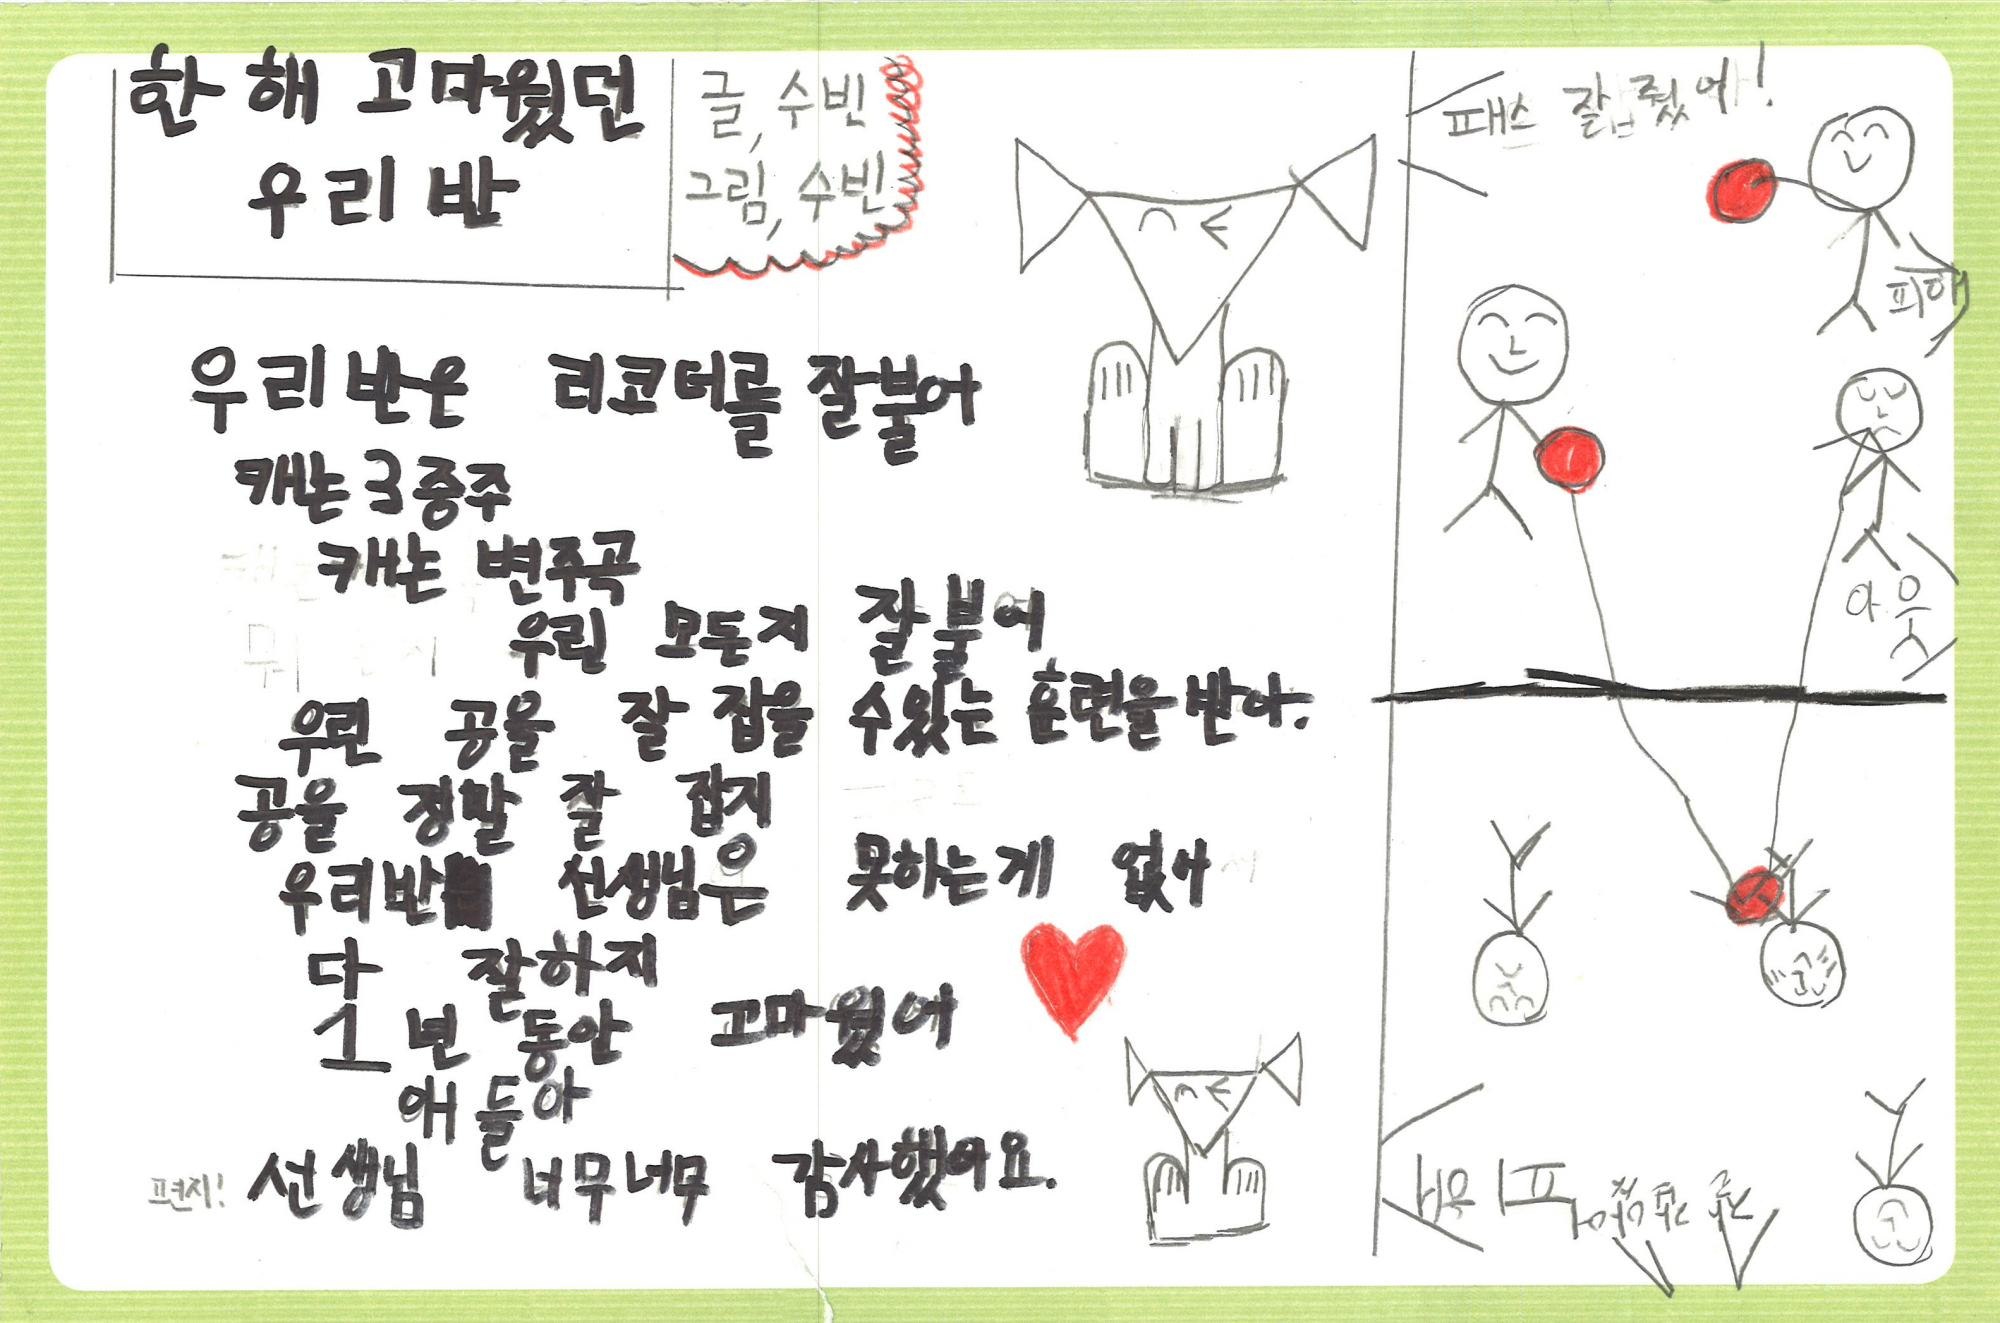 한 해 고마웠던
우리 반
글, 수빈
그림, 수빈
우리 반은 리코더를 잘불어
캐논 3중주
캐논 변주곡
우린 모든지 잘불어
우린 공을 잘 잡을 수있는 훈련을 받아.
공을 정말 잘 잡지
우리반 선생님은 못하는게 없어
다 잘하지
1년 동안 고마웠어
얘들아
편지! 선생님 너무너무 감사했어요.
패스 잘 줬어!
피해
아웃